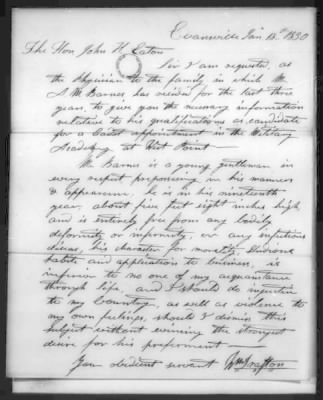 Evansville Jan 12th 1830
The Hon John H. Eaton
Sir I am requested, as
the Physician to the family in which Mr
A M Barnes has resided for the last three
years, to give you the necessary information
relative to his qualifications as candidate
for a Cadet appointment in the Military
Academy at West Point—
Mr Barnes is a young gentleman in
every respect prepossessing in his manners
& appearance. he is in his nineteenth
year, about five feet eight inches high
and is entirely free from any bodily
deformity or infirmity, or any infectious
disease, his character for morality, studious
habits and application to business, is
inferior to no one of my acquaintance
through life, and I should do injustice
to my Country, as well as violence to
my own feelings, should I dismiss this
subject without evincing the strongest
desire for his preferment—
Your obedient servant Wm Trafton